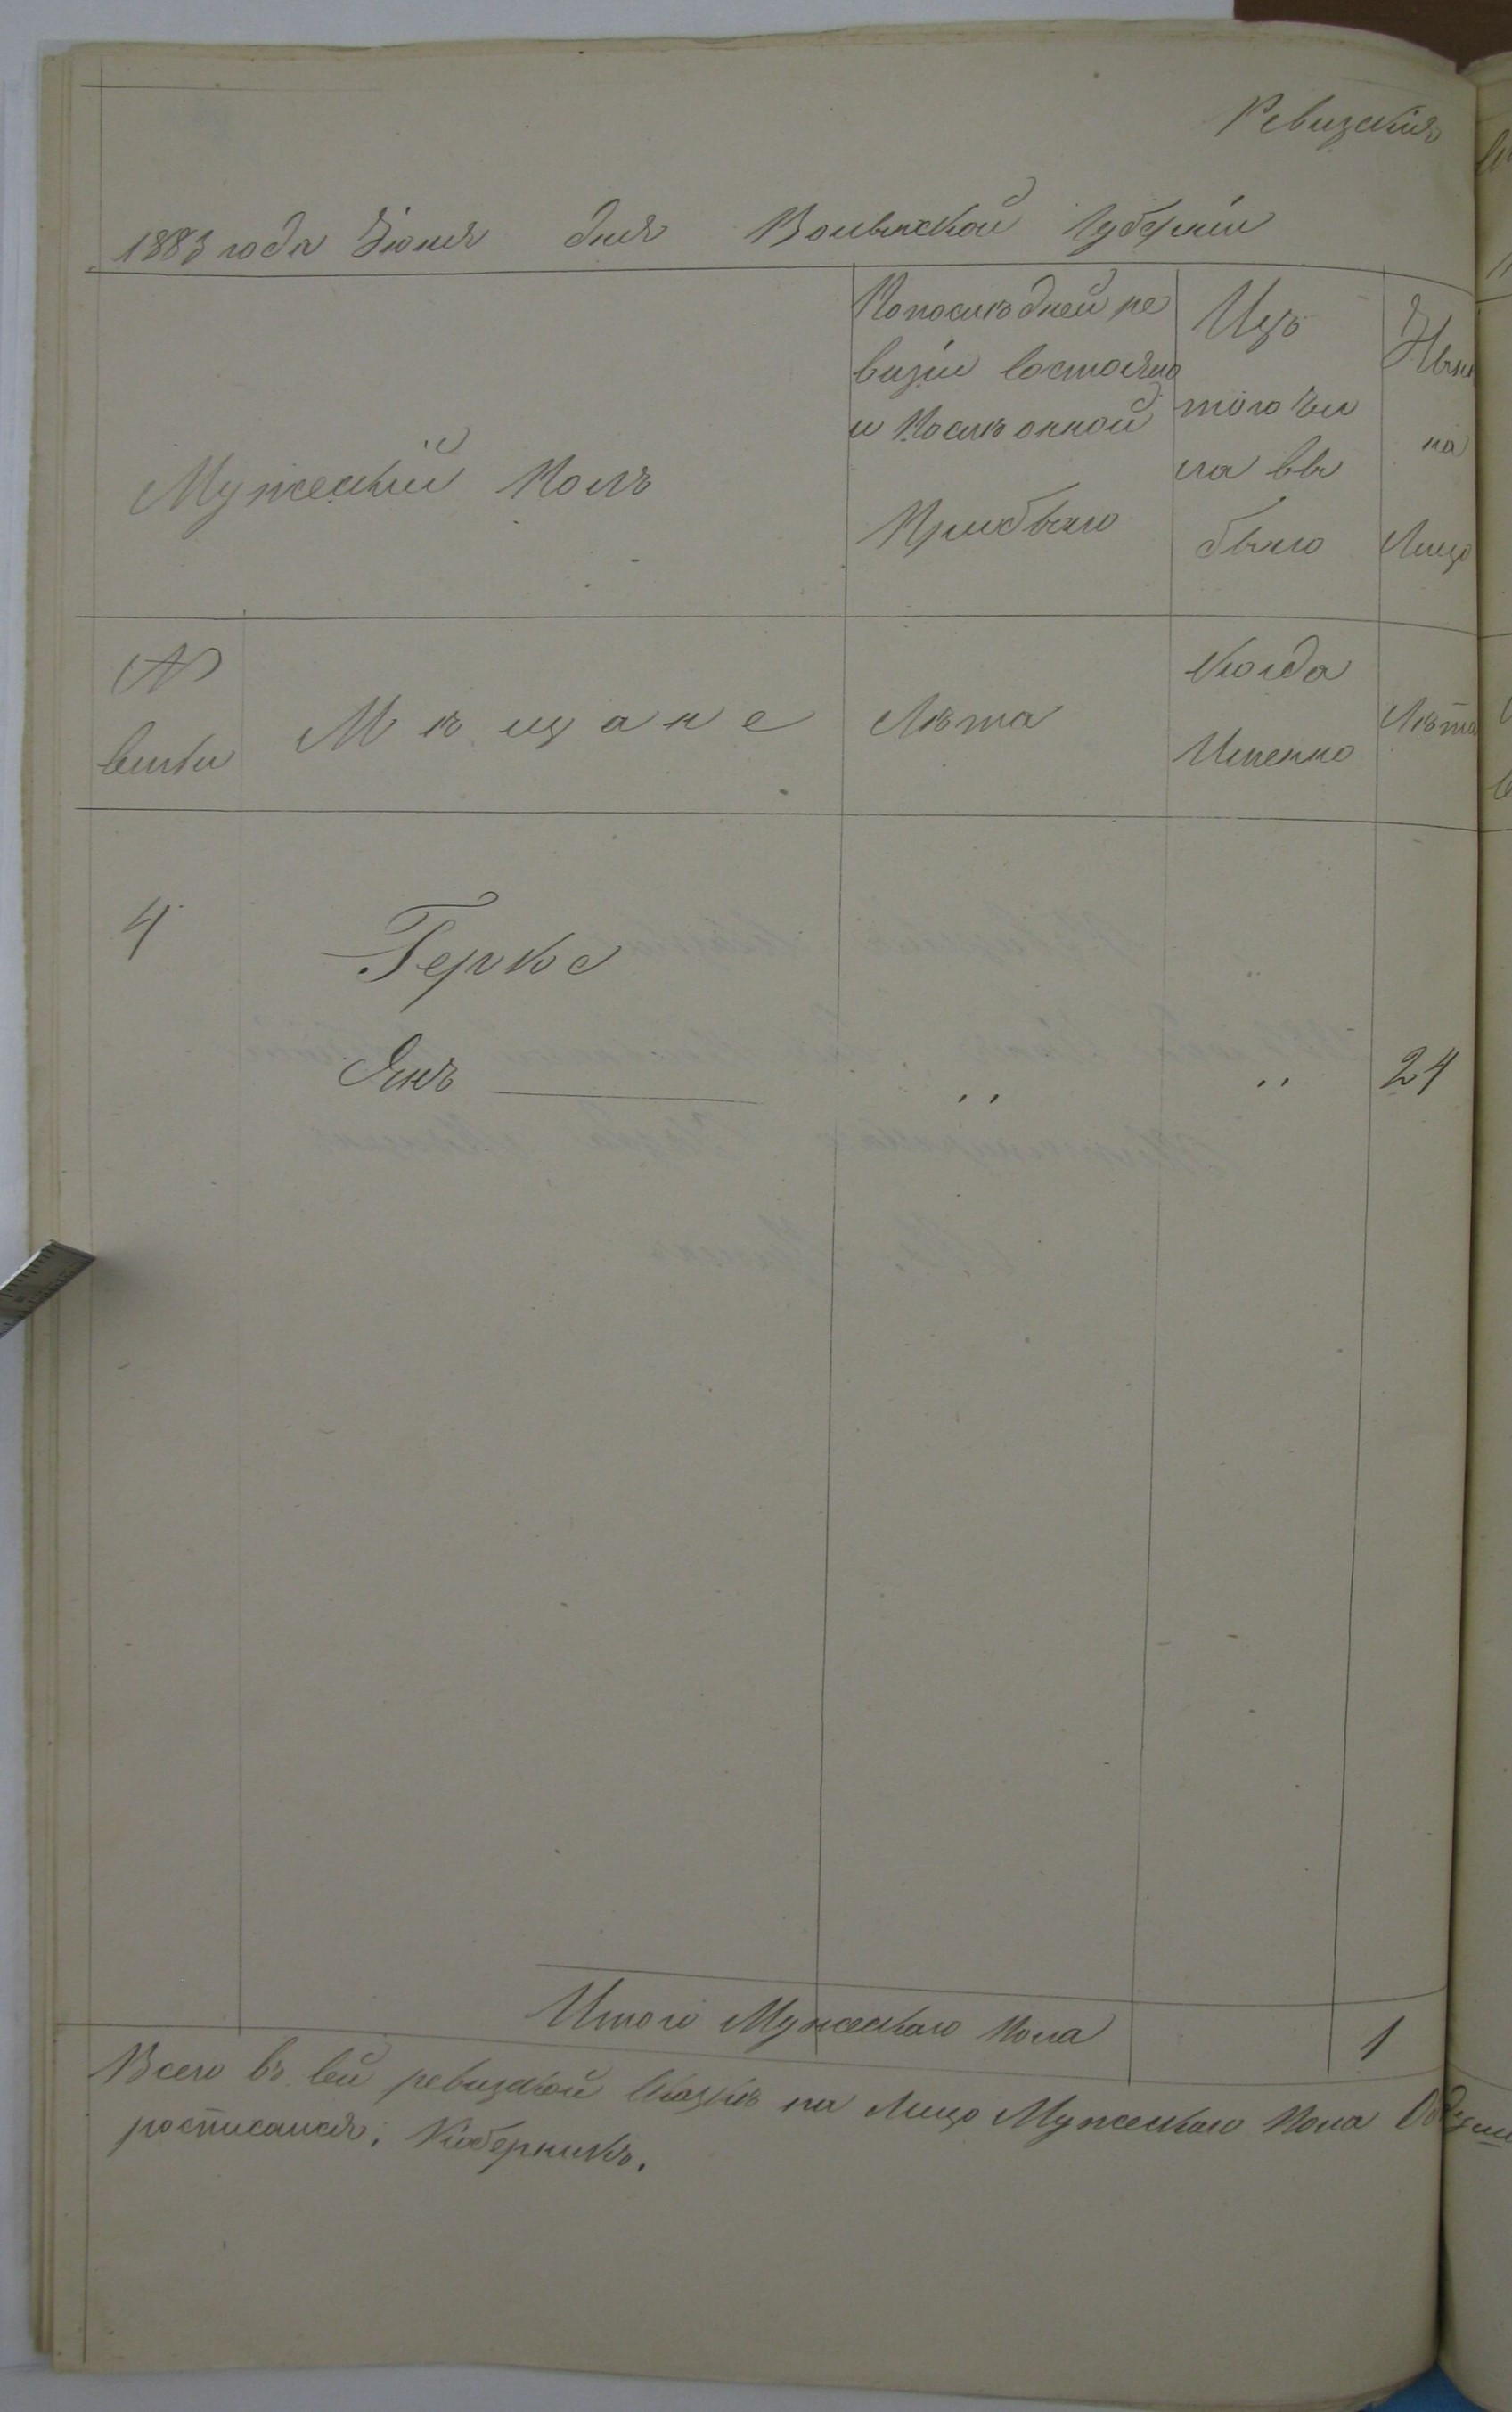 Ревизскія
1883 года Іюня дня Волынской Губерніи
Мужескій Полъ
По послѣдней ре
визіи состояло
и Послѣ онной
Прибыло
Изъ
того чи
сла вы
было
Нын
на
Лицо
№
семьи
Мѣщане
Лѣта
Когда
Именно
Лѣта
4
Герке
Янъ
,,
,,
24
Итого Мужескаго пола
1
Всего въ сей ревизской сказкѣ на Лицо Мужескаго Пола
росписался: Коберникъ.